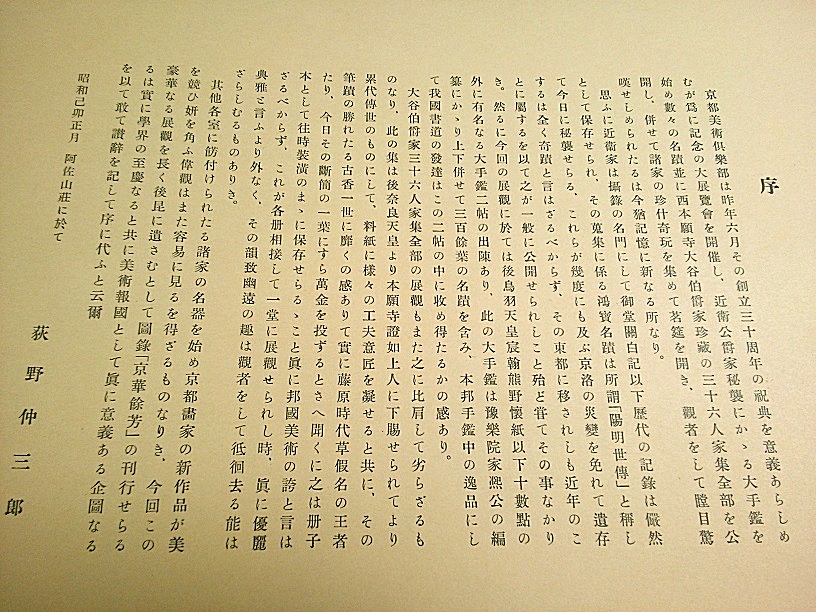 序
京都美術倶樂部は昨年六月その創立三十周年の祝典を意義あらしめ
むが爲に記念の大展覽會を開催し、近衞公爵家秘襲にかゝる大手鑑を
始め數々の名蹟並に西本願寺大谷伯爵家珍藏の三十六人家集全部を公
開し、併せて諸家の珍什奇玩を集めて茗筵を開き、觀者をして瞠目驚
嘆せしめられたるは今猶記憶に新なる所なり。
思ふに近衞家は攝籙の名門にして御堂關白記以下歷代の記錄は儼然
として保存せられ、その蒐集に係る鴻寳名蹟は所謂「陽明世傳」と稱し
て今日に秘襲せらる、これらが幾度にも及ぶ京洛の災變を免れて遺存
するは全く奇蹟と言はざるべからず、その東都に移されしも近年のこ
とに屬するを以て之が一般に公開せられしこと殆ど甞てその事なかり
き。然るに今回の展觀に於ては後鳥羽天皇宸翰熊野懷紙以下十數點の
外に有名なる大手鑑二帖の出陳あり、此の大手鑑は豫樂院家凞公の編
纂にかゝり上下併せて三百餘葉の名蹟を含み、本邦手鑑中の逸品にし
て我國書道の發達はこの二帖の中に收め得たるかの感あり。
大谷伯爵家三十六人家集全部の展觀もまた之に比肩して劣らざるも
のなり、此の集は後奈良天皇より本願寺證如上人に下賜せられてより
累代傳世のものにして、料紙に樣々の工夫意匠を凝せると共に、その
筆蹟の勝れたる古香一世に靡くの感ありて實に藤原時代草假名の王者
たり、今日その斷簡の一葉にすら萬金を投ずるとさへ聞くに之は册子
本として往時裝潢のまゝに保存せらるゝこと眞に邦國美術の誇と言は
ざるべからず、これが各册相接して一堂に展觀せられし時、眞に優麗
典雅と言ふより外なく、その韻致幽遠の趣は觀者をして低徊去る能は
ざらしむるものありき。
其他各室に飾付けられたる諸家の名器を始め京都畵家の新作品が美
を競ひ妍を角ふ偉觀はまた容易に見るを得ざるものなりき、今回この
豪華なる展觀を長く後昆に遺さむとして圖錄「京華餘芳」の刊行せらる
るは實に學界の至慶なると共に美術報國として眞に意義ある企圖なる
を以て敢て讃辭を記して序に代ふと云爾
昭和己卯正月　阿佐山莊に於て
荻野仲三郎